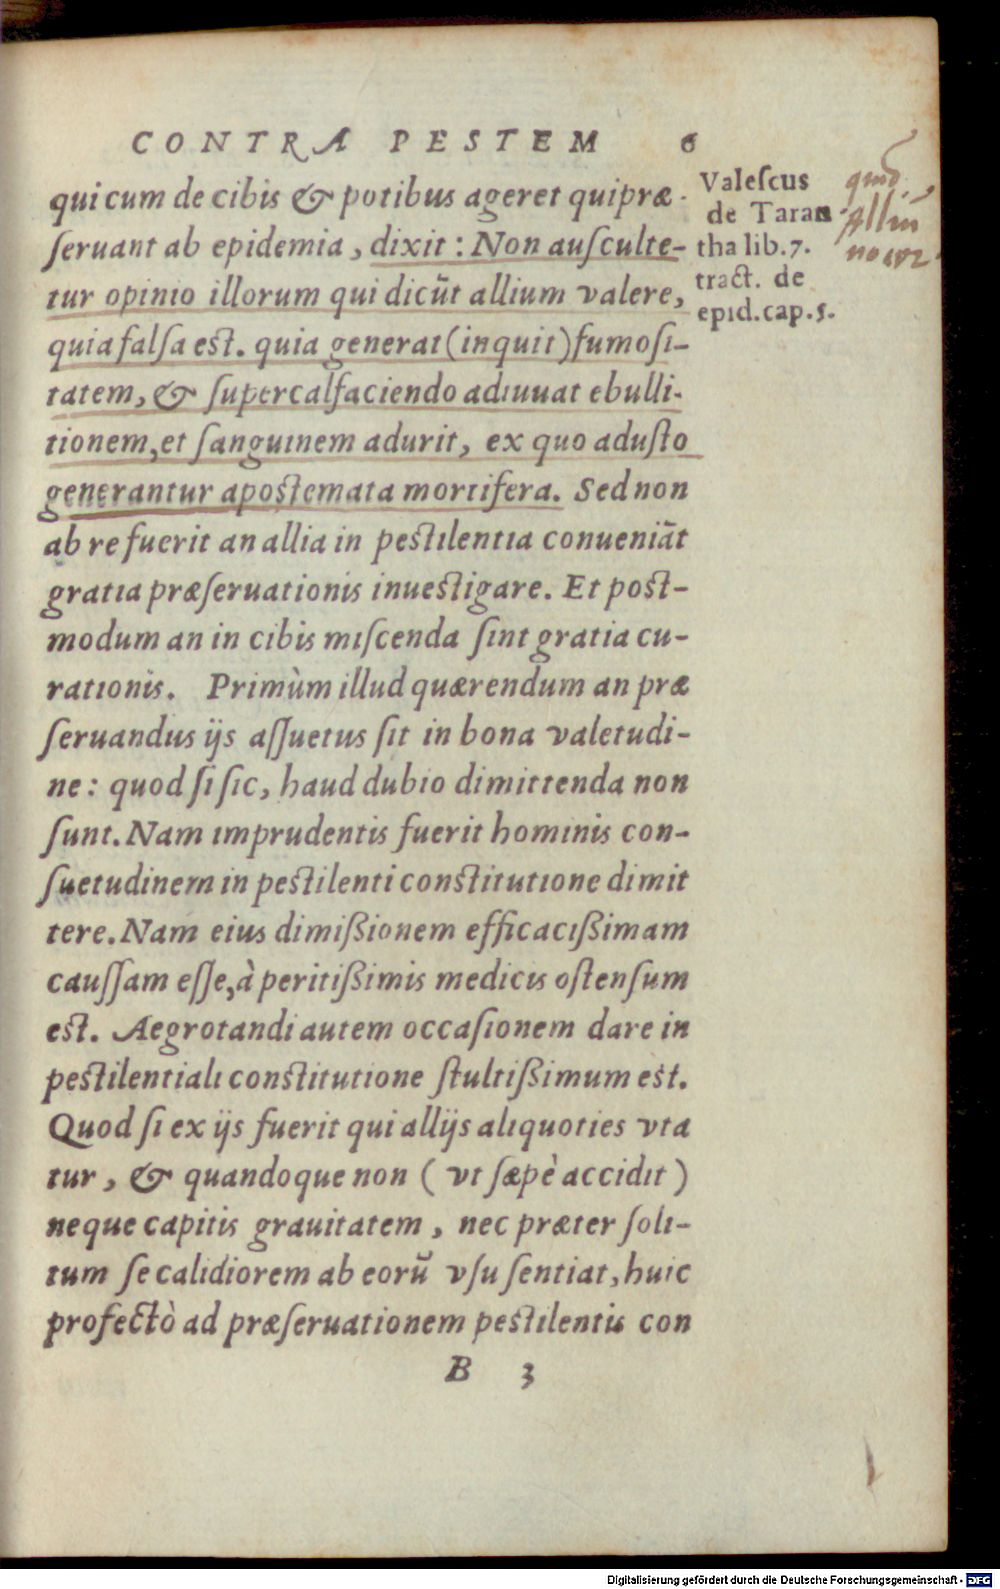 CONTRA PESTEM 6
qui cum de cibis & potibus ageret qui præ
seruant ab epidemia, dixit: Non ausculte-
tur opinio illorum qui dicūt allium valere,
quia falsa est. quia generat (inquit) fumosi-
tatem, & supercalfaciendo adiuuat ebulli-
tionem, et sanguinem adurit, ex quo adusto
generantur apostemata mortifera. Sed non
ab re fuerit an allia in pestilentia conueniāt
gratia præseruationis inuestigare. Et post-
modum an in cibis miscenda sint gratia cu-
rationis. Primùm illud quærendum an præ
seruandus ijs assuetus sit in bona valetudi-
ne: quod si sic, haud dubio dimittenda non
sunt. Nam imprudentis fuerit hominis con-
suetudinem in pestilenti constitutione dimit
tere. Nam eius dimißionem efficacißimam
caussam esse, à peritißimis medicis ostensum
est. Aegrotandi autem occasionem dare in
pestilentiali constitutione stultißimum est.
Quod si ex ijs fuerit qui allijs aliquoties vta
tur, & quandoque non ( vt sæpè accidit )
neque capitis grauitatem, nec præter soli-
tum se calidiorem ab eorū vsu sentiat, huic
profectò ad præseruationem pestilentis con
B 3
Valescus
de Taran
tha lib. 7.
tract. de
epid. cap. 5.
quod
Alliū
nocet
Digitalisierung gefördert durch die Deutsche Forschungsgemeinschaft - DFG